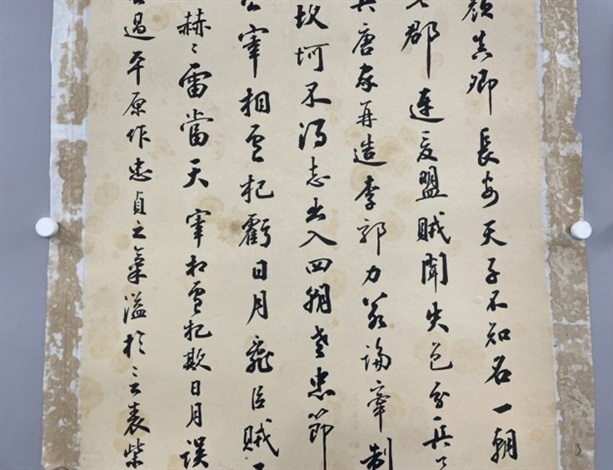 顏真卿長安天子不知名一朝
郡連夏盟賊聞失色分兵
兵唐家再造李郭力若論牽制
坎坷不得志出入四朝老忠節
公宰相盧杞虧日月亂臣賊
赫々雷當天 宰相盧杞欺日月誤
過平原作忠貞之氣溢於言表柴